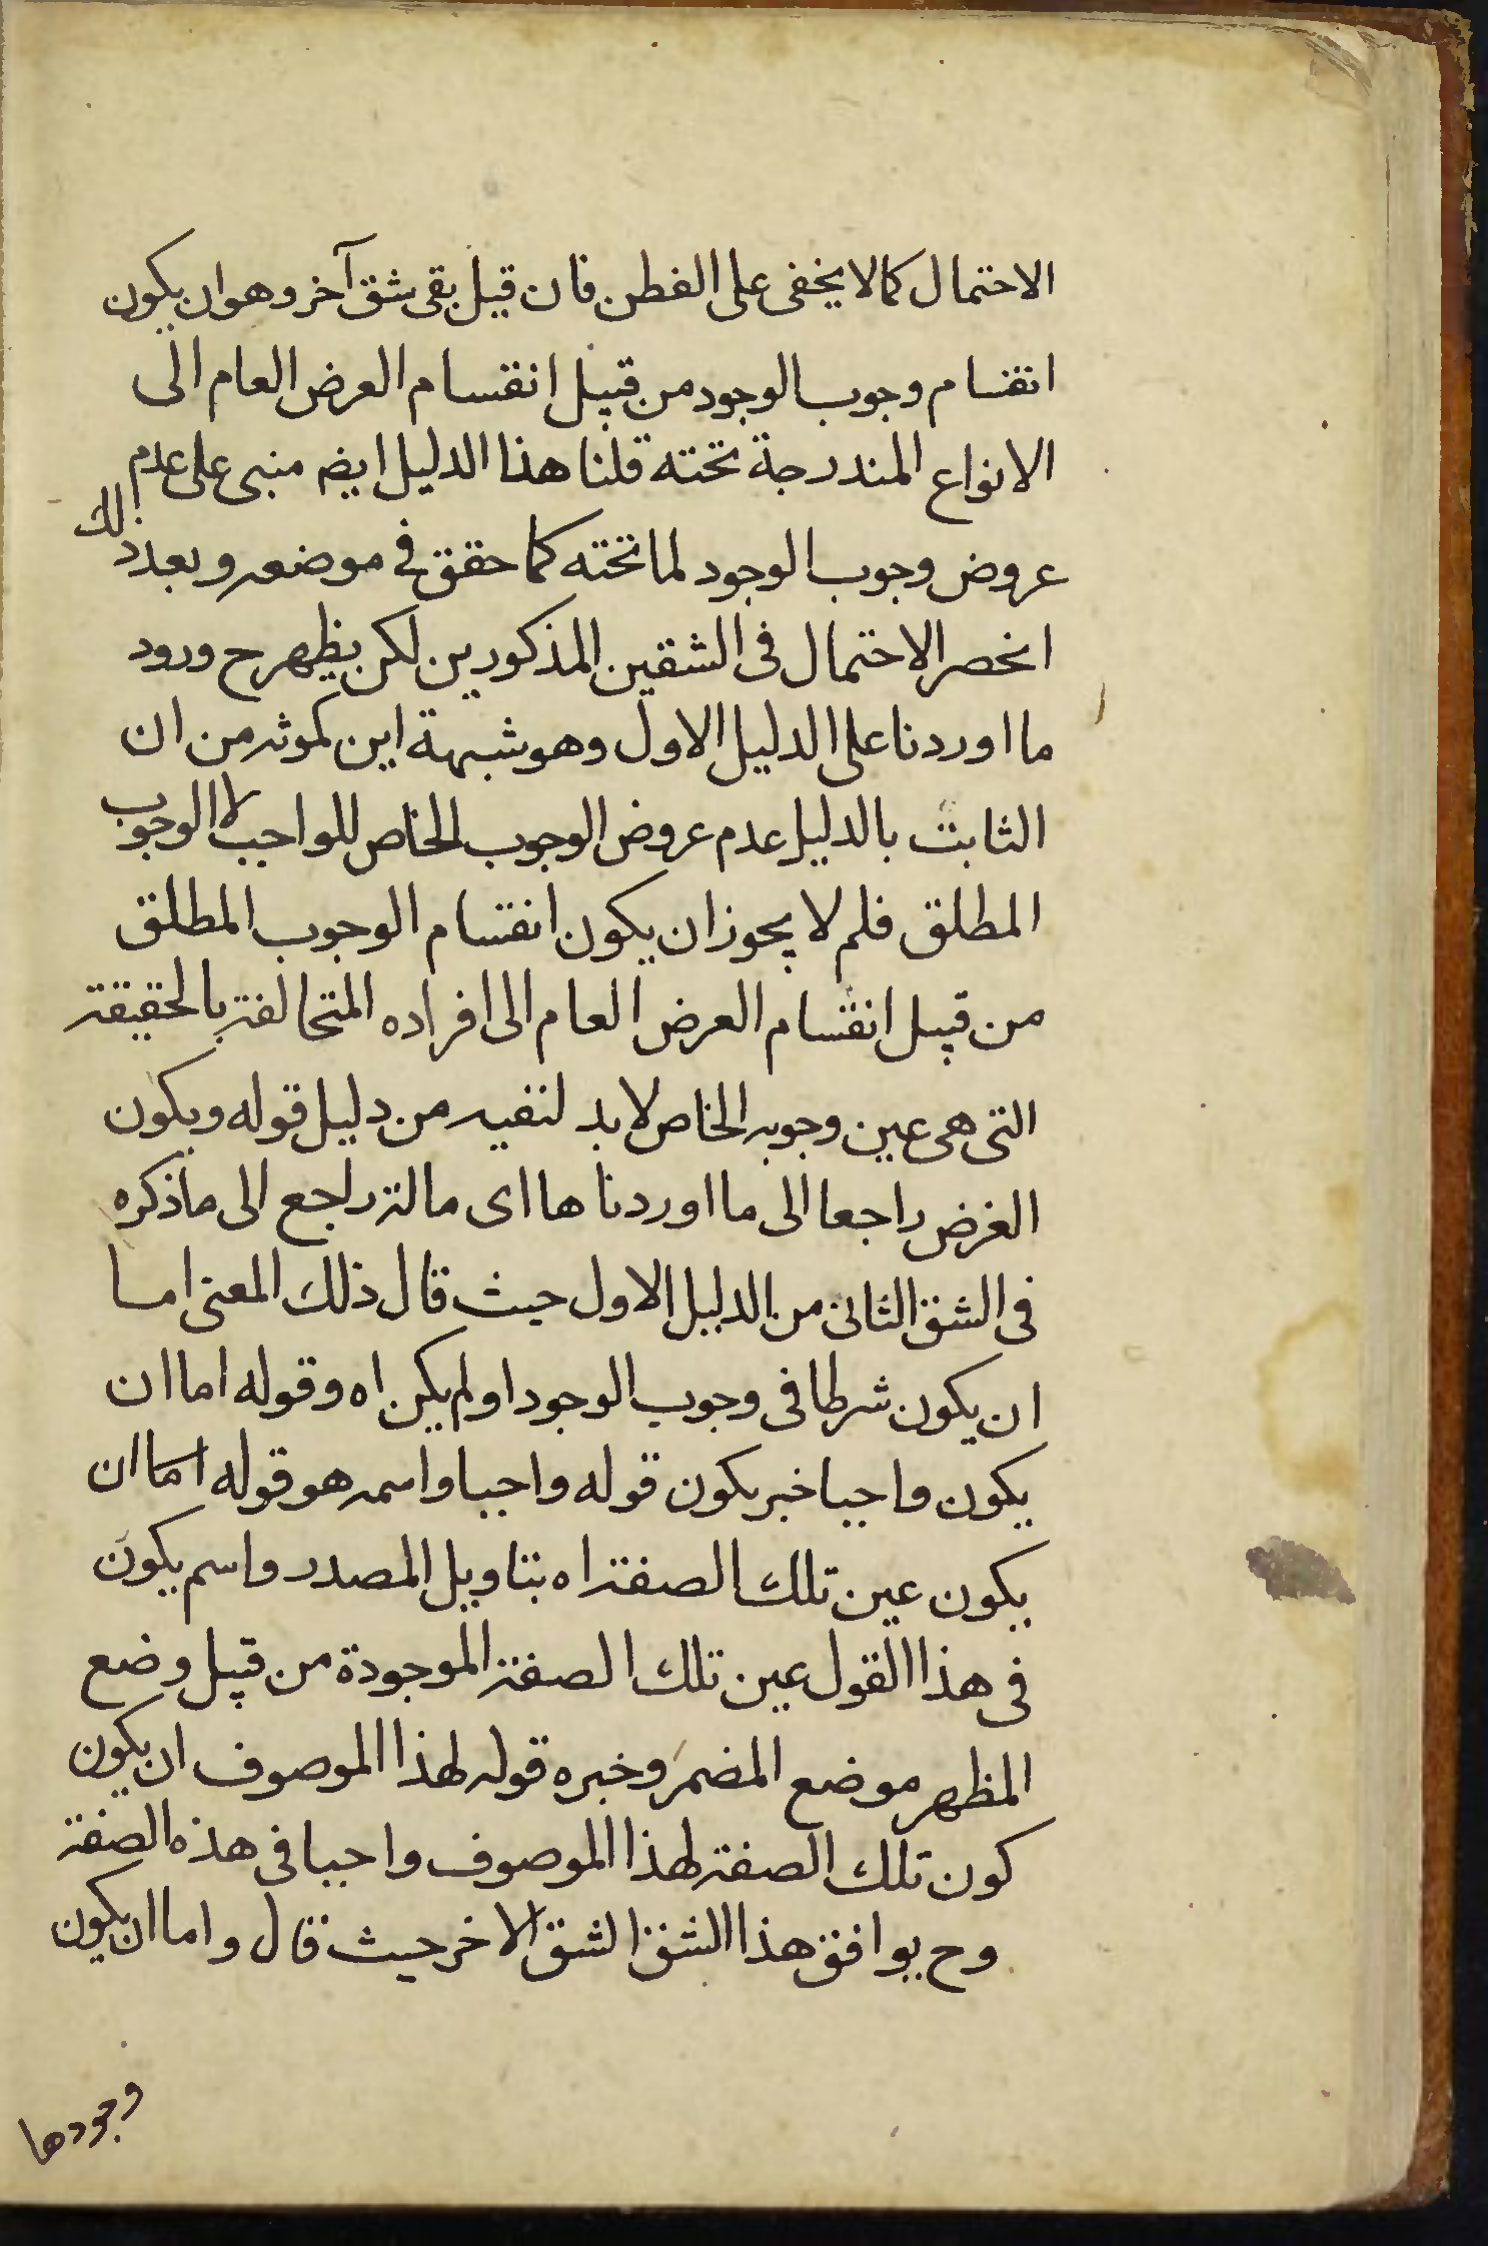 الاحتمال كما لا يخفى على الفطن فان قيل بقى شق آخر وهو ان يكون
انقسام وجوب الوجود من قبيل انقسام العرض العام الى
الانواع المندرجة تحته قلنا هذا الدليل ايضا منبى على عدم
عروض وجوب الوجود لما تحته كما حقق في موضعه وبعد ذلك
انحصر الاحتمال فى الشقين المذكورين لكن يظهر ح ورود
ما اوردنا على الدليل الاول وهو شبهة ابن كمونه من ان
الثابت بالدليل عدم عروض الوجوب الخاص للواجب لا الوجوب
المطلق فلم لا يجوز ان يكون انقسام الوجوب المطلق
من قبيل انقسام العرض العام الى افراده المتخالفة بالحقيقة
التى هى عين وجوبه الخاص لا بد لنفيه من دليل قوله ويكون
الغرض راجعا الى ما اوردناها اى مالة راجع الى ما ذكره
فى الشق الثانى من الدليل الاول حيث قال ذلك المعنى اما
ان يكون شرطا فى وجوب الوجود او لم يكن اه وقوله اما ان
يكون واجبا خبر يكون قوله واجبا واسمه هو قوله اما ان
يكون عين تلك الصفة اه بتاويل المصدر واسم يكون
فى هذا القول عين تلك الصفة الموجودة من قبيل وضع
المظهر موضع المضمر وخبره قوله لهذا الموصوف ان يكون
كون تلك الصفة لهذا الموصوف واجبا فى هذه الصفة
وح يوافق هذا الشق الشق الاخر حيث قال واما ان يكون
وجودها